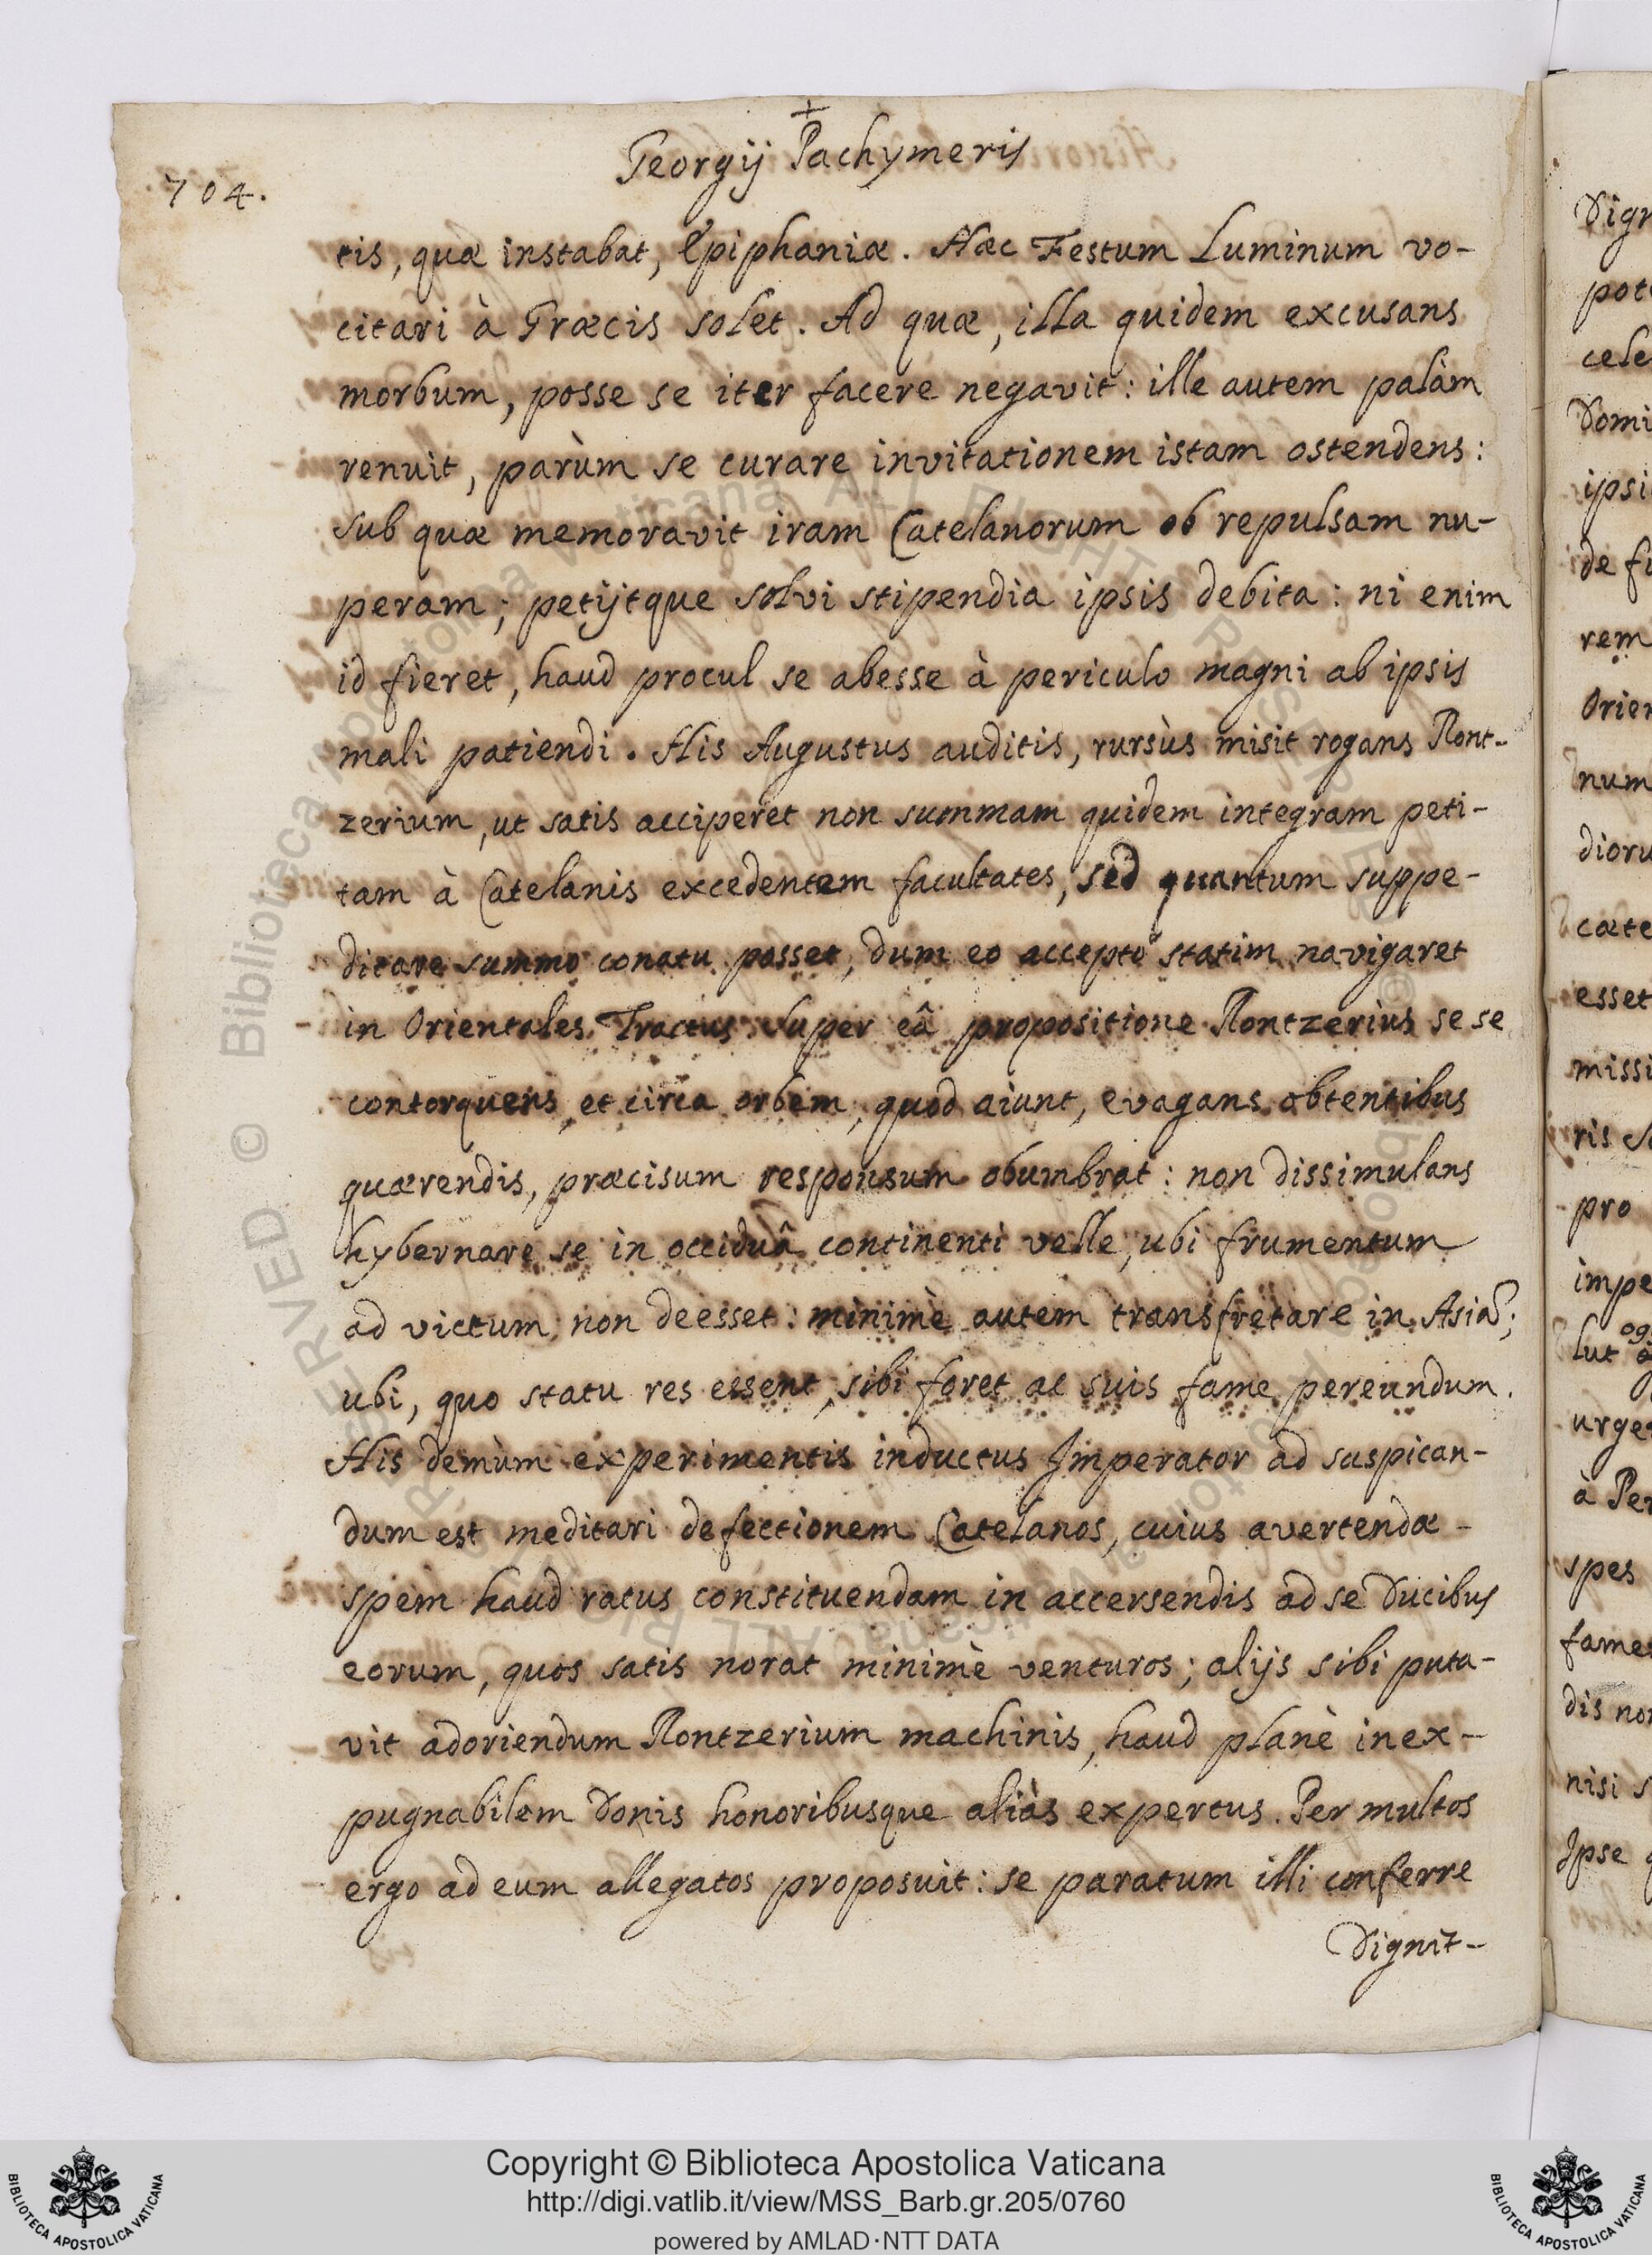 +
Georgij Pachymeris
704.
tis, quæ instabat, Epiphaniæ. Hæc Festum Luminum vo-
citari à Græcis solet. Ad quæ, illa quidem excusans
morbum, posse se iter facere negavit: ille autem palàm
renuit, parùm se curare invitationem istam ostendens:
sub quæ memoravit iram Catelanorum ob repulsam nu-
peram; petijtque solvi stipendia ipsis debita: ni enim
id fieret, haud procul se abesse à periculo magni ab ipsis
mali patiendi. His Augustus auditis, rursùs misit rogans Ront-
zerium, ut satis acciperet non summam quidem integram peti-
tam à Catelanis excedentem facultates, sed quantum suppe-
ditare summo conatu posset, dum eo accepto statim navigaret
in Orientales Tractus. Super eâ propositione Rontzerius se se
contorquens, et circa orbem, quod aiunt, evagans obtentibus
quærendis, præcisum responsum obumbrat: non dissimulans
hybernare se in occiduâ continenti velle, ubi frumentum
ad victum non deesset: minimè autem transfretare in Asiã;
ubi, quo statu res essent, sibi foret ac suis fame pereundum.
His demùm experimentis inductus Imperator ad suspican-
dum est meditari defectionem Catelanos, cuius avertendæ-
spem haud ratus constituendam in accersendis ad se Ducibus
eorum, quos satis norat minimè venturos; alijs sibi puta-
vit adoriendum Rontzerium machinis, haud planè inex-
pugnabilem donis honoribusque aliàs expertus. Per multos
ergo ad eum allegatos proposuit: se paratum illi conferre
Dignit-
Copyright © Biblioteca Apostolica Vaticana
http://digi.vatlib.it/view/MSS_Barb.gr.205/0760
powered by AMLAD·NTT DATA
BIBLIOTECA APOSTOLICA VATICANA
BIBLIOTECA APOSTOLICA VATICANA